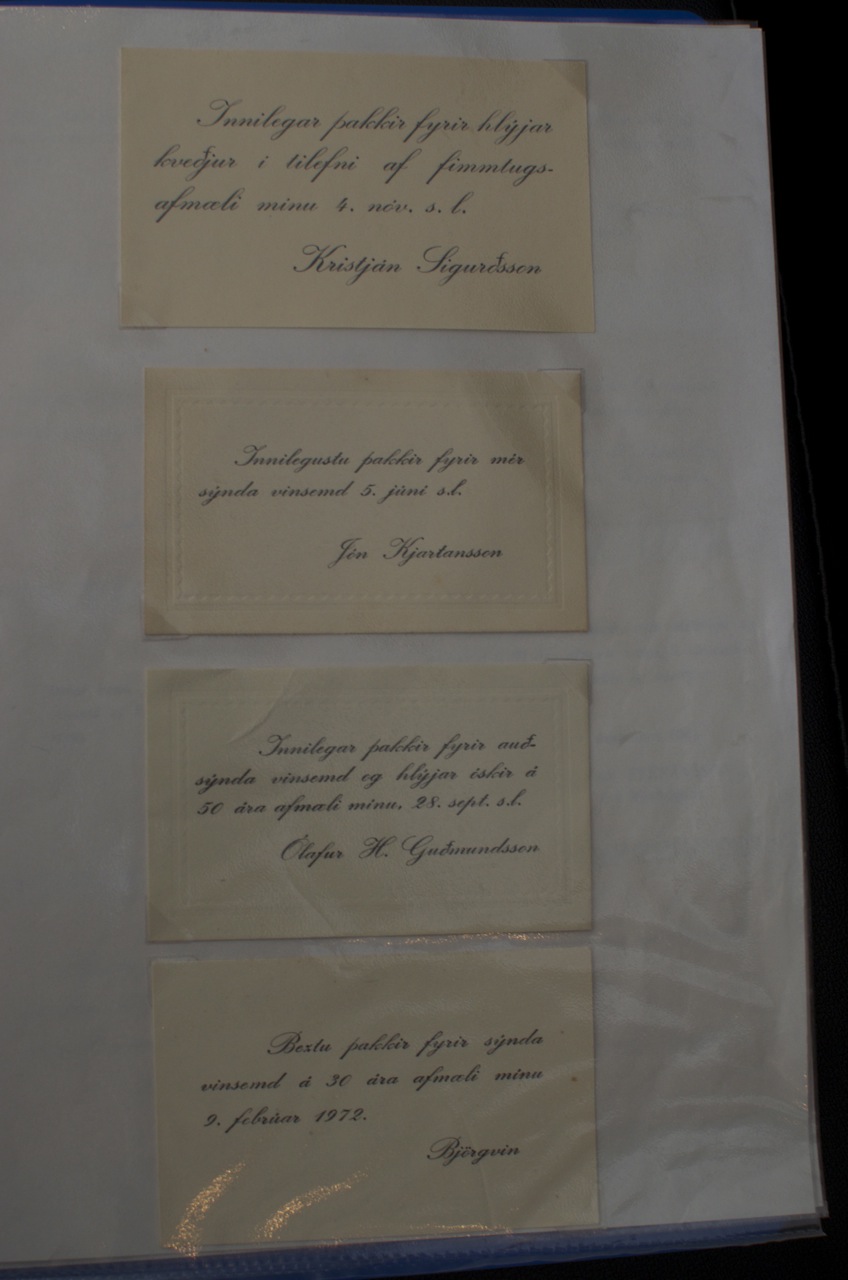 Innilegar þakkir fyrir hlýjar
kveðjur í tilefni af fimmtugs-
afmæli mínu 4. nóv. s. l.
Kristján Sigurðsson
Innilegustu þakkir fyrir mér
sýnda vinsemd 5. júní s.l.
Jón Kjartansson
Innilegar þakkir fyrir auð-
sýnda vinsemd og hlýjar óskir á
50 ára afmæli mínu, 28. sept. s.l.
Ólafur H. Guðmundsson
Beztu þakkir fyrir sýnda
vinsemd á 30 ára afmæli mínu
9. febrúar 1972.
Björgvin